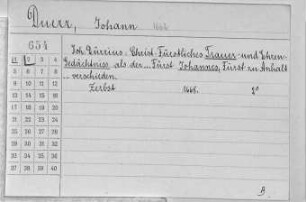 Duerr, Johann
654
Joh. Dürrius. Christ-Fürstliches Trauer- und Ehren-
Gedächtniss als der ... Fürst Johannes, Fürst zu Anhalt
... verschieden.
Zerbst 2°
1 2 3 4
5 6 7 8
9 10 11 12
13 14 15 16
17 18 19 20
21 22 23 24
25 26 27 28
29 30 31 32
33 34 35 36
37 38 39 40
B